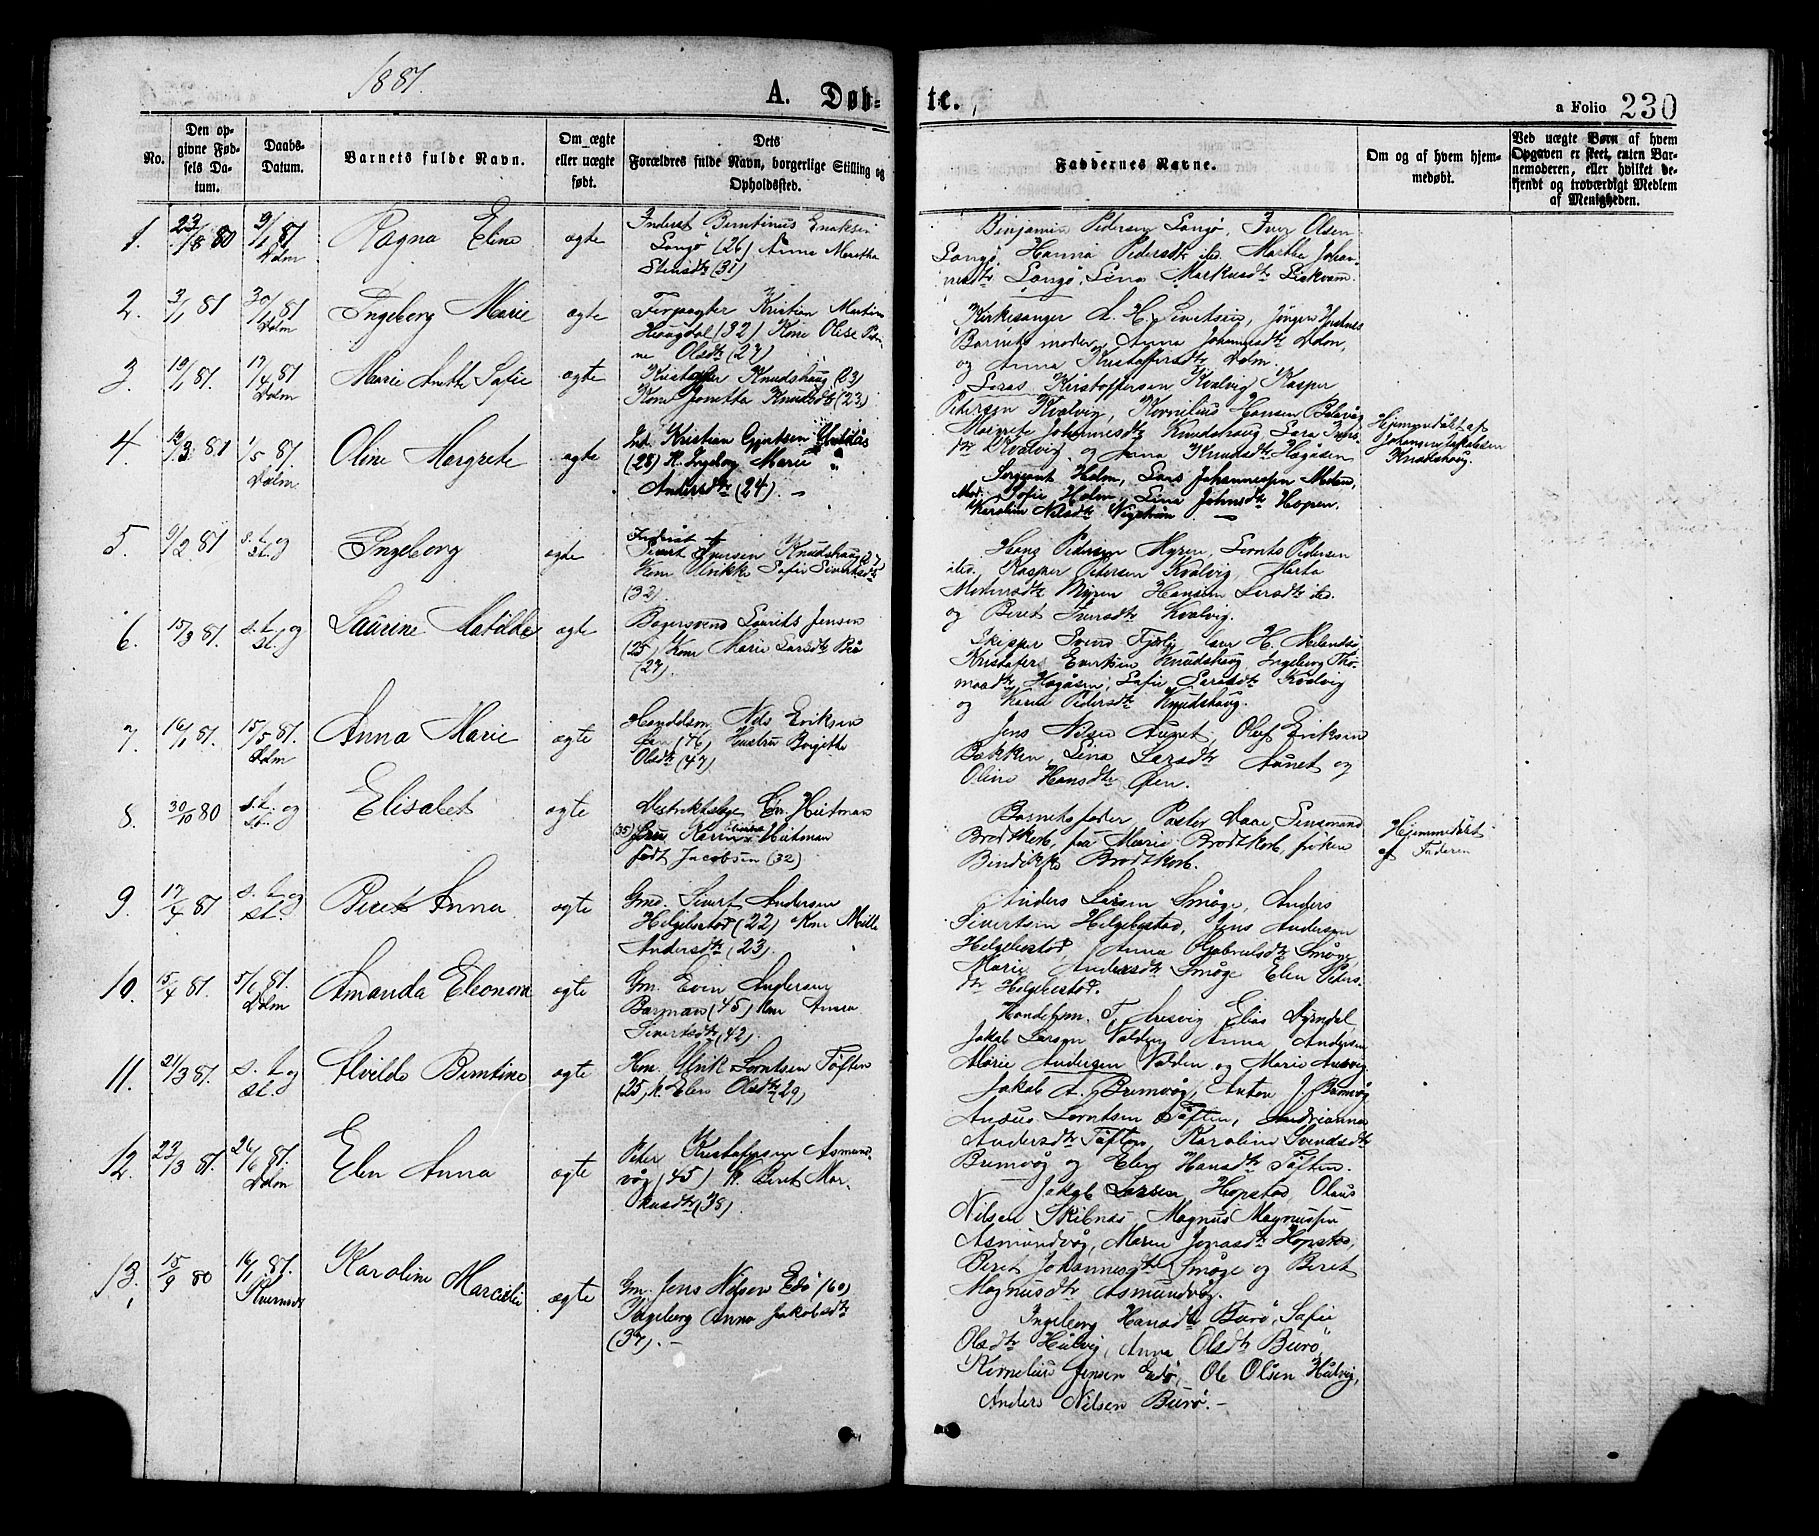 1881.
A. Døb-
te.
a Folio 230
No.
Den op-
givne Fød-
sels Da-
tum.
Daabs-
Datum.
Barnets fulde Navn.
Om ægte
eller uægte
født.
Dets
Forældres fulde Navn, borgerlige Stilling og
Opholdssted.
Faddernes Navne.
Om og af hvem hjem-
medøbt.
Ved uægte Børn af hvem
Opgaven er skeet, enten Bar-
nemoderen, eller hvilket be-
kjendt og troværdigt Medlem
af Menigheden.
1. 23/8 80 9/1 81 Dolm
Ragna Eline
ægte
Inderst Berntinus Enoksen
Langø (26) Anna Martha
Stensdtr (31)
Benjamin Pedersen Langø, Iver Olsen
Langø, Hanna Pedersdtr ibd. Marthe Johan-
nesdtr Langø, Lina Markusdtr
2. 3/1 81 30/1 81 Dolm
Ingeborg Marie
ægte
Kristian Martin
Haugdal (32) Kone Olise Petri-
ne Olsdtr (27)
Kirkesanger L. H. Jørgen
Barnets moder, Anna Johannesdtr Dolm,
og Anna Kristoffersdtr Dolm.
3. 19/1 81. 17/4 81 Dolm
Marie Anette Sofie
ægte
Kristoffer Knudshaug (23)
Kone Jonetta Knudsdtr (23)
Laras Kristoffersen Kvalvig Kasper
Petersen Kvalvig, Kornelius Hansen
Margrete Johannesdtr Knudshaug Sara Ivers-
dtr Kvalvig og Anna Knudsdtr Hagåsen
Hjemmedøbt af
Johannes Jakobsen
Knudshaug.
4. 12/3 81 1/5 81. Dolm
Oline Margrete
ægte
Ind. Kristian Gjertsen Ulvdås
(28) K. Ingeborg Marie
Andersdtr (24). –
Sergeant Holm, Lars Johannessen Melan,
Mad. Sofie Holm, Lina Johnsdtr Hopen,
Karoline Nilsdtr
5. 9/2 81 s. t. og st.
Ingeborg
ægte
Inderst
Sivert Iversen Knudshaug
Kone Ulrikke Sofie Sivertsdtr
(32)
Hans Pedersen Myren, Lornts Pedersen
ibd. Kasper Petersen Kvalvig, Marta
Mortensdtr Myren Hansine Larsdtr ibd.
og Beret Iversdtr Kvalvig.
6. 15/3 81. s. t. og st.
Laurine Matilde
ægte
Bagersvend Laurits Jensen
(25) Kone Marie Larsdtr Bø
(27)
Skipper Svend Fjeldly H.
Kristofer Evertsen Knudshaug, Ingeborg Tho-
masdtr Hagåsen, Sofie Larsdtr Kvalvig
og Karen Pedersdtr Knudshaug.
7. 16/1 81. 15/5 81. Dolm
Anna Marie
ægte
Handelsm. Nils Eriksen
Øien (46) Hustru Birgitte
Olsdtr (47)
Jens Nilsen Aunet, Oluf Eriksen
Bakken, Lina Larsdtr Aunet og
Oline Hansdtr Øien.
8. 30/10 80 s. t. og st.
Elisabet
ægte
Distriktslæge Chr. Heitman
(35) Fru Karen Heitman
født Jacobsen (32)
Barnets fader, Pastor Daae Lensmand
Brodtkorb, fru Marie Brodtkorb, frøken
Brodtkorb.
Hjemmedøbt
af Faderen
9. 17/4 81 s. t. og st.
Beret Anna
ægte
Gmd. Sivert Andersen
Helgebostad (22) Kone Mille
Andersdtr (23)
Anders Larsen Smøge, Anders
Sivertsen Helgebostad, Jens Andersen
Helgebostad, Anna Gabrielsdtr Smøge,
Marie Andersdtr Smøge Elen Peders-
dtr Helgebostad.
10. 15/4 81. 5/6 81. Dolm
Amanda Eleonora
ægte
Gm. Even Andersen
Barman (45) Kone Anna
Sivertsdtr (42)
Handelsm. F. Aresvig Elias Dyrndal
Jakob Larsen Volden, Anna Andersen
Marie Andersen Volden og Marie Aresvig
11. 21/3 81. s. t. og st.
Alvilde Berntine
ægte
Hm. Ulrik Lorntsen Tøften
(25), K. Elen Olsdtr (29)
Jakob A. Bremvåg, Anton J. Bremvåg
Lorntsen Tøften, Andrianna
Andersdtr Tøften, Karoline Svendsdtr
Bremvåg og Elen Hansdtr Tøften.
12. 23/3 81. 26/6 81. Dolm
Elen Anna
ægte
Peter Kristofersen Asmund-
våg (45) K. Beret Mar-
kusdtr (38)
Jakob Larsen, Hopstad, Olaus
Nilsen Skibnæs Magnus Magnussen
Asmundvåg, Maren Jonasdtr Hopstad,
Beret Johannesdtr Smøge og Beret
Magnusdtr Asmundvåg.
13. 15/9 80 16/1 81.
Karoline
ægte
Gm. Jens Nilsen Edø (60)
Ingeborg Anna Jakobsdtr
(37). –
Ingeborg Hansdtr Burø, Sofie
Olsdtr Hålvig, Anna Olsdtr Burø,
Kornelius Jensen Edø, Ole Olsen Hålvig,
Anders Nilsen Burø. –